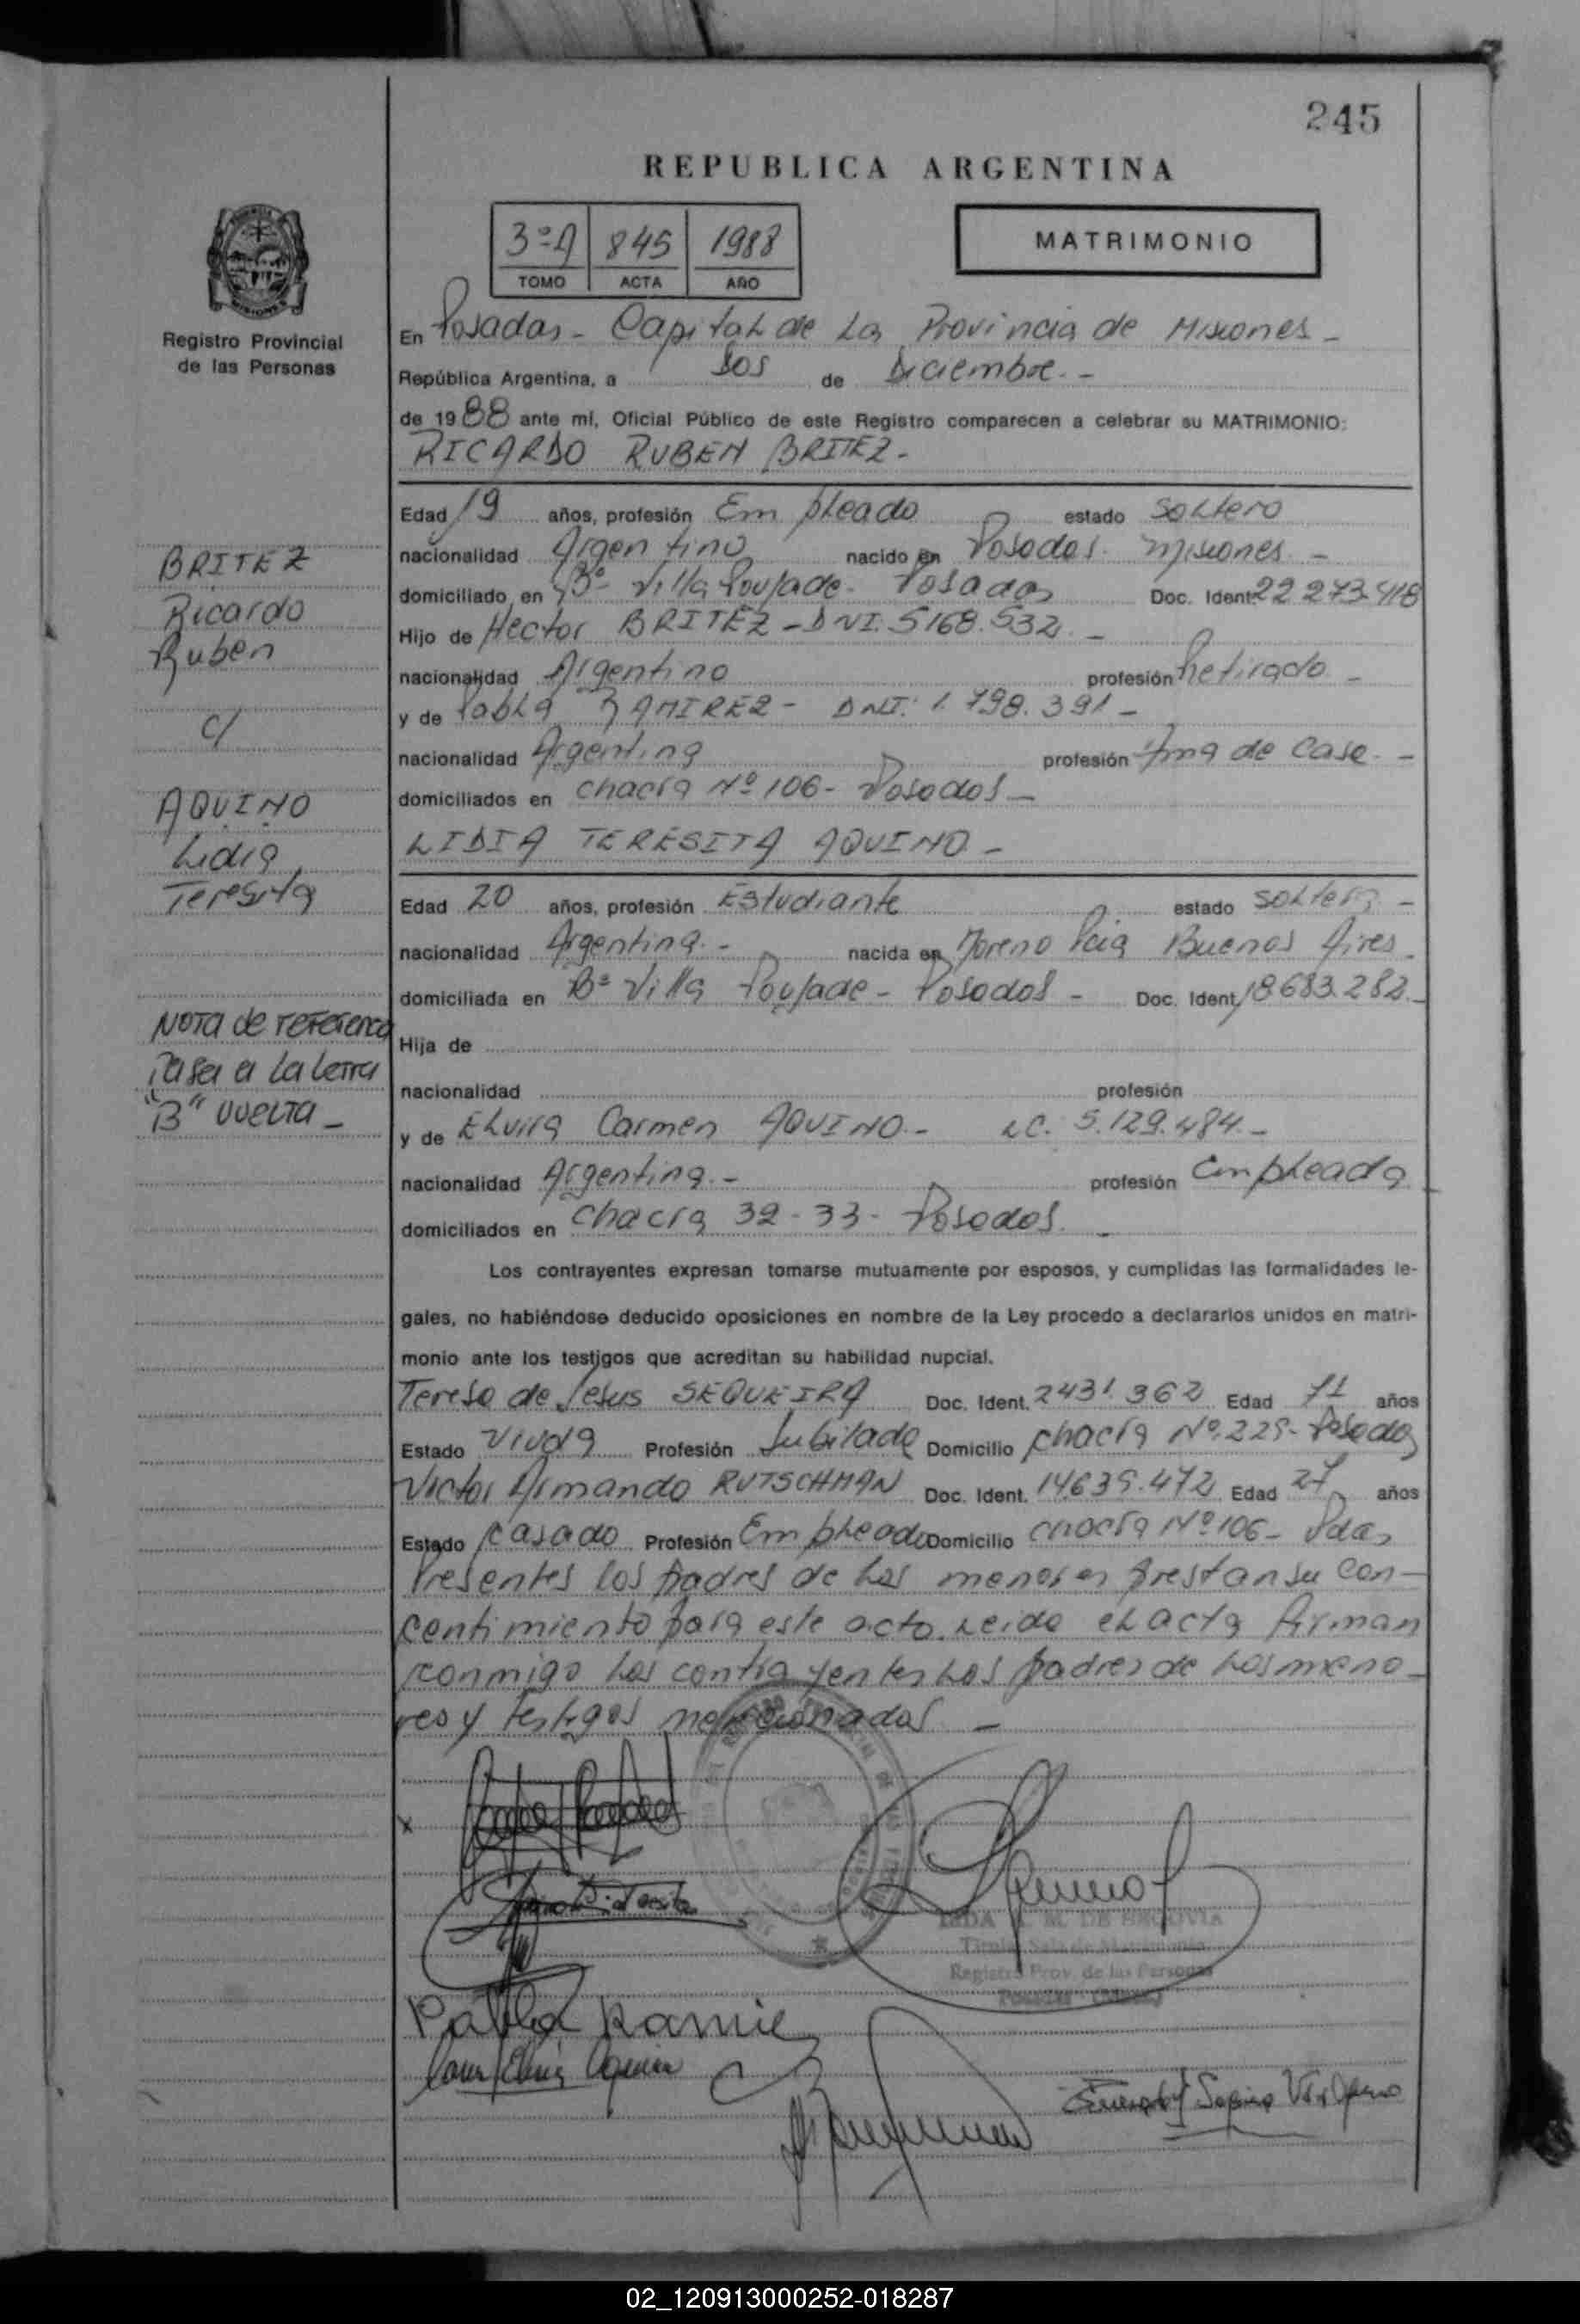 245
REPUBLICA ARGENTINA
3º A 845 1988
TOMO ACTA AÑO
MATRIMONIO
Registro Provincial
de las Personas
En Posadas - Capital de La Provincia de Misiones -
República Argentina, a Dos de Diciembre. -
de 1988 ante mí, Oficial Público de este Registro comparecen a celebrar su MATRIMONIO:
RICARDO RUBEN BRITEZ -
Edad 19 años, profesión Empleado estado soltero
nacionalidad Argentino nacido en Posadas. Misiones. -
domiciliado en Bº Villa Poujade - Posadas Doc. Ident. 22 273.418
Hijo de Hector BRITEZ - DNI. 5168.532 -
nacionalidad Argentino profesión Retirado -
y de Pabla RAMIREZ - DNI: 1.798.391 -
nacionalidad Argentina profesión Ama de Casa. -
domiciliados en chacra Nº 106 - Posadas -
LIDIA TERESITA AQUINO -
Edad 20 años, profesión Estudiante estado soltera -
nacionalidad Argentina. - nacida en Moreno Pcia Buenos Aires.
domiciliada en Bº Villa Poujade - Posadas - Doc. Ident. 18683.282. -
Hija de
nacionalidad profesión
y de Elvira Carmen AQUINO. - LC. 5.129.484. -
nacionalidad Argentina. - profesión Empleada
domiciliados en Chacra 32-33 - Posadas. -
Los contrayentes expresan tomarse mutuamente por esposos, y cumplidas las formalidades le-
gales, no habiéndose deducido oposiciones en nombre de la Ley procedo a declararlos unidos en matri-
monio ante los testigos que acreditan su habilidad nupcial.
Teresa de Jesus SEQUEIRA Doc. Ident. 2431.362 Edad 71 años
Estado Viuda Profesión Jubilada Domicilio chacra Nº 225 - Posadas
Victor Armando RUTSCHMAN Doc. Ident. 14.639.472 Edad 27 años
Estado Casado Profesión Empleado Domicilio chacra Nº 106 - Pdas
Presentes los padres de los menores prestan su con-
centimiento para este acto. Leida el acta firman
conmigo los contrayentes los padres de los meno-
res y testigos mencionados -
BRITEZ
Ricardo
Ruben
c/
AQUINO
Lidia
Teresita
NOTA de referencia
Pasa a La Letra
"B" VUELTA -
x
DE SEGOVIA
Titular Sala de Matrimonio
Registro Prov. de las Personas
Pabla Ramirez
02_120913000252-018287